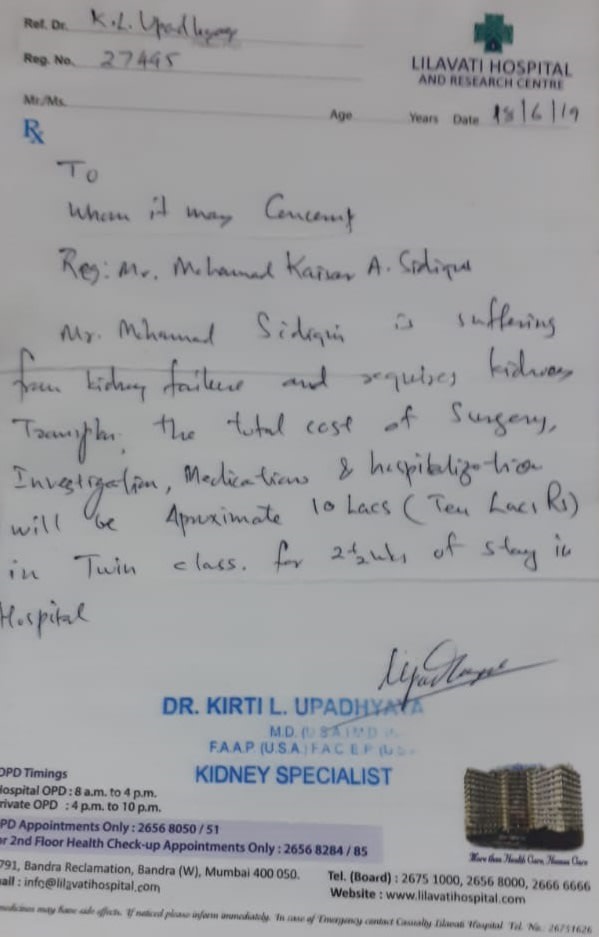 Ref. Dr. K.L. Upadhyaya
LILAVATI HOSPITAL
AND RESEARCH CENTRE
Reg. No. 27495
Mr./Ms. Age Years Date 18/6/19
Rx
To
Whom it may Concern
Reg: Mr. Mohamad Kaisar A. Sidiqui
Mr. Mohamad Sidiqui is suffering
from kidney failure and requires kidney
the total cost of Surgery,
Investigation, Medications & hospitalization
will be Aproximate 10 Lacs (Ten Lacs Rs)
in Twin class. for 2½ wks of stay in
Hospital
DR. KIRTI L. UPADHYAYA
M.D. (U.S.A)
F.A.A.P. (U.S.A.)
KIDNEY SPECIALIST
OPD Timings
Hospital OPD : 8 a.m. to 4 p.m.
rivate OPD : 4 p.m. to 10 p.m.
PD Appointments Only : 2656 8050 / 51
or 2nd Floor Health Check-up Appointments Only : 2656 8284 / 85
791, Bandra Reclamation, Bandra (W), Mumbai 400 050.
ail : info@lilavatihospital.com
More than Health Care, Human Care
Tel. (Board) : 2675 1000, 2656 8000, 2666 6666
Website : www.lilavatihospital.com
medicines may have side effects. If noticed please inform immediately. In case of Emergency contact Casualty Lilavati Hospital Tel. No. 26751626